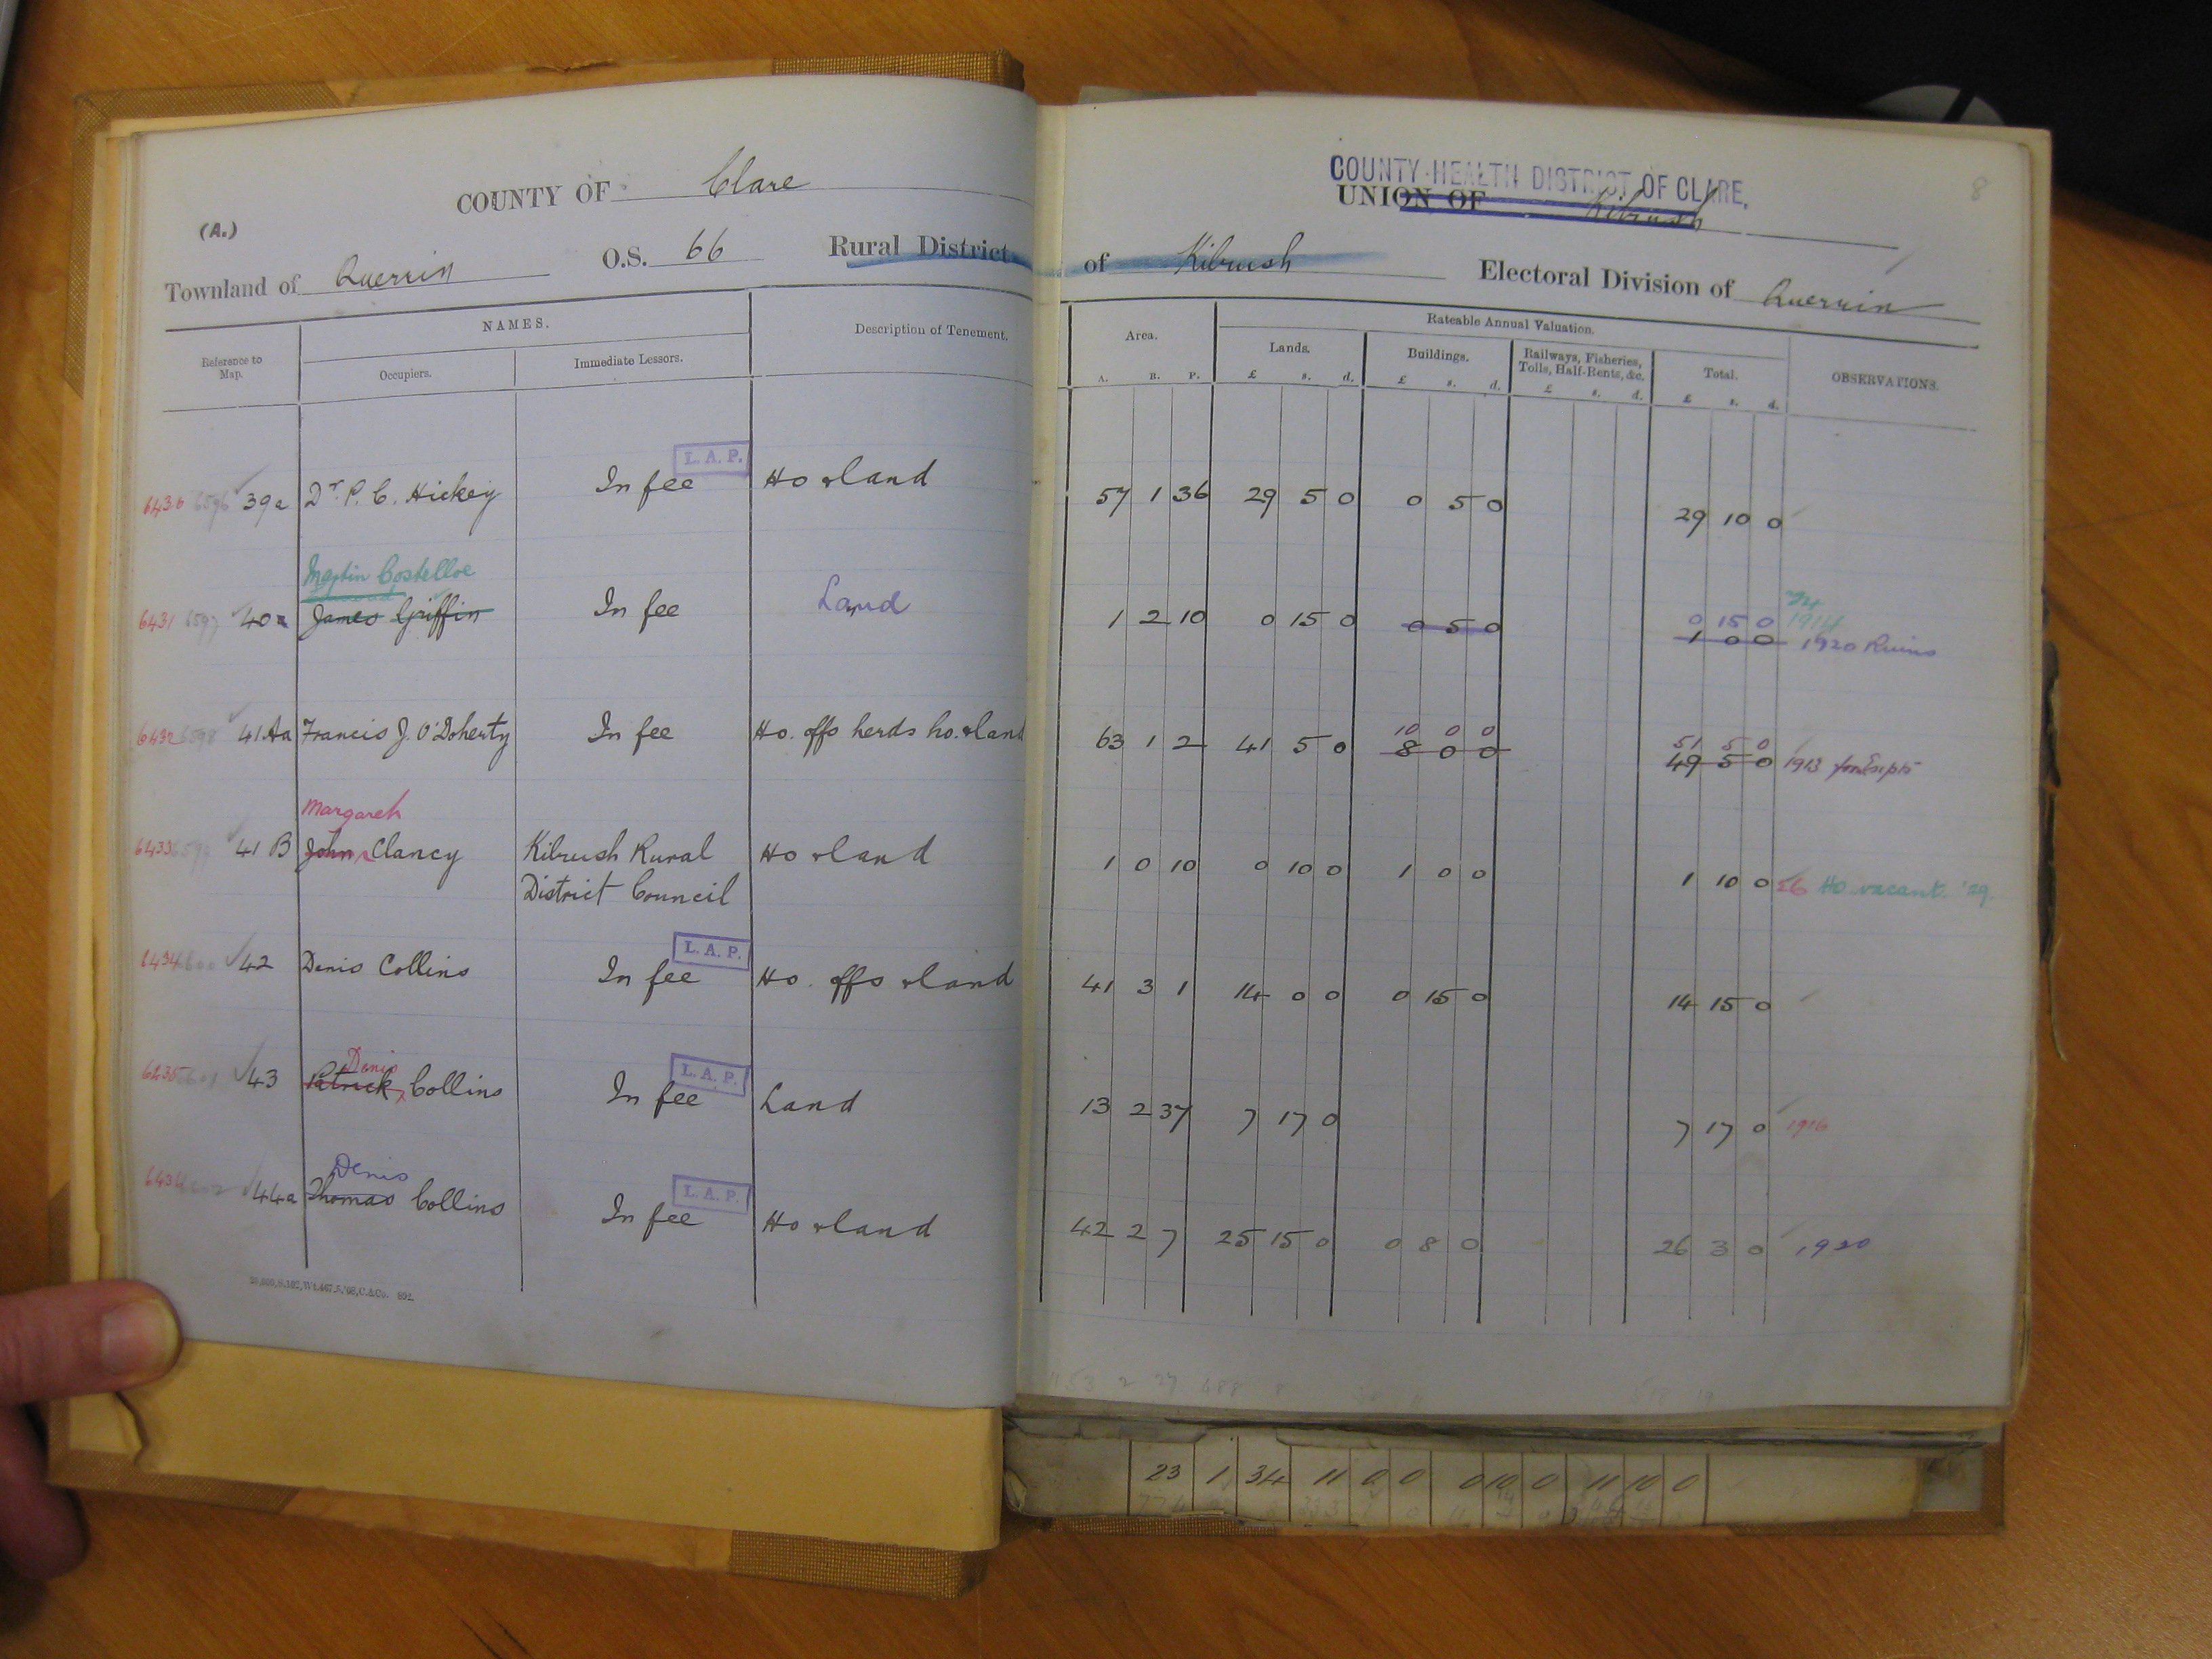 COUNTY OF Clare
COUNTY HEALTH DISTRICT OF CLARE.
UNION OF Kilrush
8
(A.)
Townland of Querrin O.S. 66 Rural District of Kilrush Electoral Division of Querrin
Reference to Map. NAMES. Occupiers. Immediate Lessors. Description of Tenement. Area. A. R. P. Rateable Annual Valuation. Lands. £ s. d. Buildings. £ s. d. Railways, Fisheries, Tolls, Half-Rents, &c. £ s. d. Total. £ s. d. OBSERVATIONS.
L. A. P.
6430 6596 39a Dr. P. C. Hickey In fee Ho & land 57 1 36 29 5 0 0 5 0 29 10 0
Martin Costelloe
0 15 0 1914
6431 6597 40 James Griffin In fee Land 1 2 10 0 15 0 0 5 0 1 0 0 1920 Ruins
10 0 0 51 5 0
6432 6598 41Aa Francis J. O'Doherty In fee Ho. offs herds ho. & land 63 1 2 41 5 0 8 0 0 49 5 0 1913
Margaret
6433 6599 41 B John Clancy Kilrush Rural Ho & land 1 0 10 0 10 0 1 0 0 1 10 0 26 Ho. vacant '29.
District Council
L. A. P.
6434 6600 42 Denis Collins In fee Ho. offs & land 41 3 1 14 0 0 0 15 0 14 15 0
Denis L. A. P.
6435 6601 43 Patrick Collins In fee Land 13 2 37 7 17 0 7 17 0 1916
Denis L. A. P.
44a Thomas Collins In fee Ho & land 42 2 7 25 15 0 0 8 0 26 3 0 1920
23 1 34 11 0 0 0 10 0 11 10 0